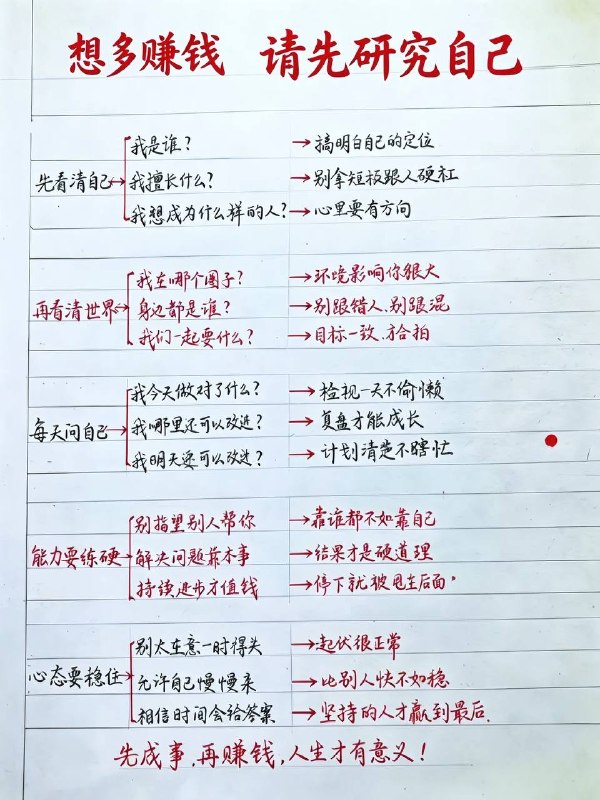 想多赚钱 请先研究自己
我是谁? → 搞明白自己的定位
先看清自己 → 我擅长什么? → 别拿短板跟人硬杠
我想成为什么样的人? → 心里要有方向
我在哪个圈子? → 环境影响你很大
再看清世界 → 身边都是谁? → 别跟错人.别跟混
我们一起要什么? → 目标一致.才合拍
我今天做对了什么? → 检视一天不偷懒
每天问自己 → 我哪里还可以改进? → 复盘才能成长
我明天要可以改进? → 计划清楚不瞎忙
别指望别人帮你 → 靠谁都不如靠自己
能力要练硬 → 解决问题靠本事 → 结果才是硬道理
持续进步才值钱 → 停下就被甩在后面
别太在意一时得失 → 起伏很正常
心态要稳住 → 允许自己慢慢来 → 比别人快不如稳
相信时间会给答案 → 坚持的人才赢到最后.
先成事,再赚钱,人生才有意义!